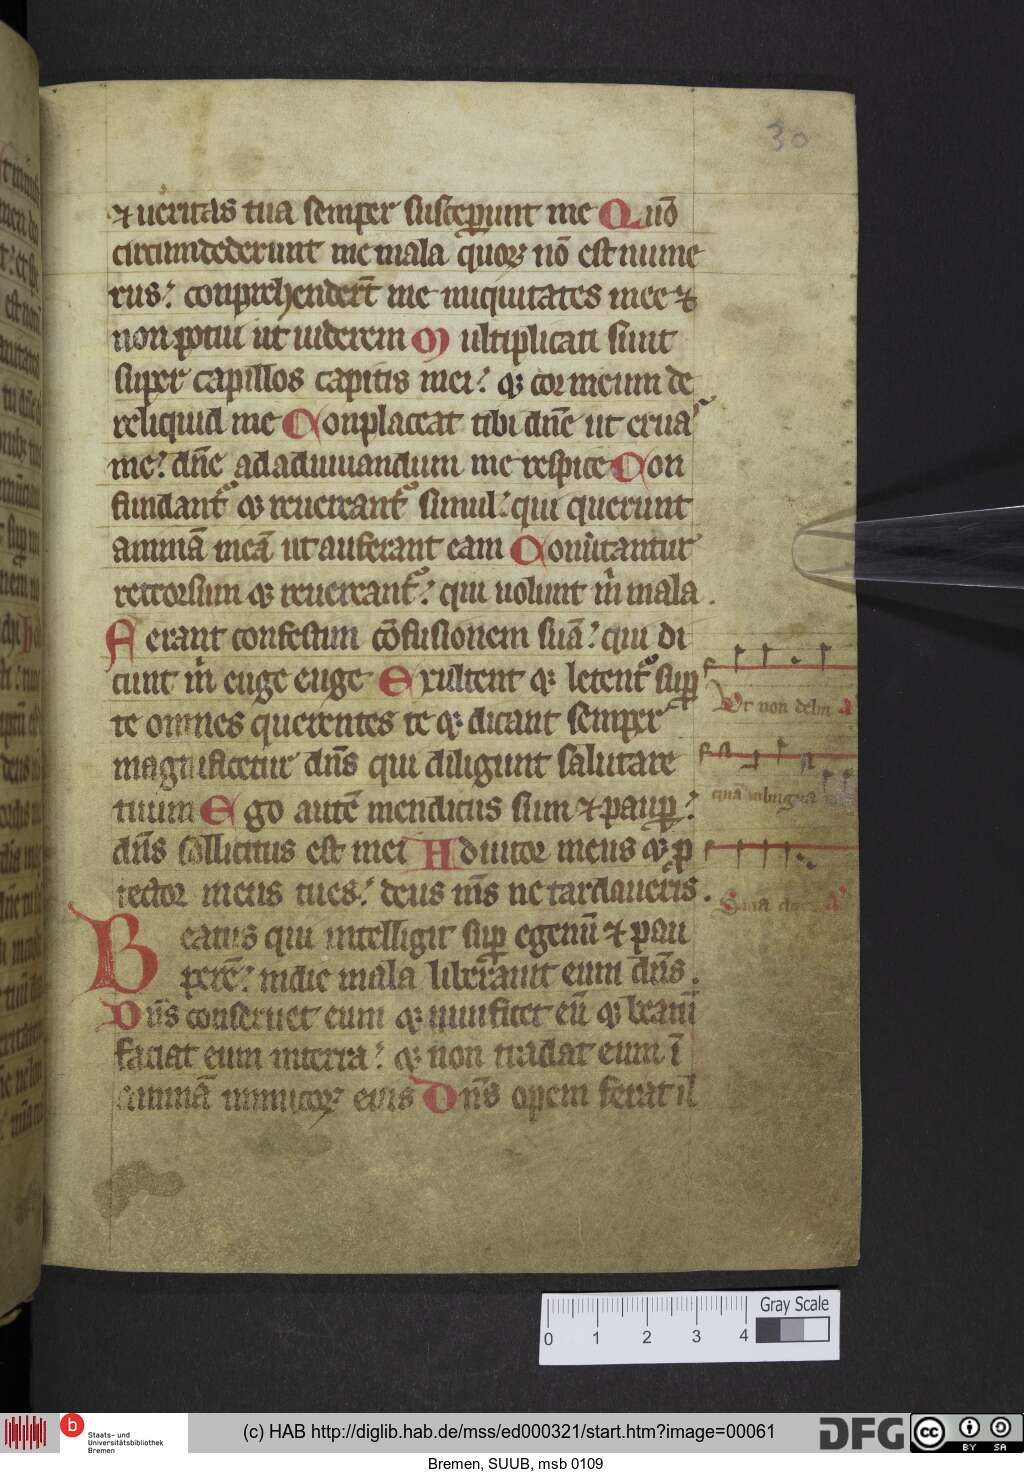 30
⁊ ueritas tua semper susceperunt me Quō
circumdederunt me mala quoꝝ nō est nume
rus: conprehenderūt me iniquitates mee ⁊
non potui ut uiderem Multiplicati sunt
super capillos capitis mei: ⁊ cor meum de
reliquid me Conplaceat tibi dn̄e ut eruas
me: dn̄e ad adiuuandum me respice Con
fundant᷑ ⁊ reuereant᷑ simul: qui querunt
animā meā ut auferant eam Conu̾tantur
retrorsum ⁊ reuereant᷑: qui uolunt m̄ mala.
Ferant confestim cōfusionem suā: qui di
cunt m̄ euge euge Exultent ⁊ letent᷑ sup̱
te omnes querentes te ⁊ dicant semper
magnificetur dn̄s qui diligunt salutare
tuum Ego autē mendicus sum ⁊ paup̱:
dn̄s sollicitus est mei Adiutor meus ⁊ p̱
tector meus tu es: deus m̄s ne tardaueris.
Beatus qui intelligit sup̱ egenū ⁊ pau
perē: in die mala liberauit eum dn̄s.
Dn̄s conseruet eum ⁊ uiuificet eū ⁊ beatū
faciat eum in terra: ⁊ non tradat eum ī
animā inimicoꝝ eius Dn̄s opem ferat il
Ut non delin
quā in lingua
Sana
0 1 2 3 4
Gray Scale
b
Staats- und
Universitätsbibliothek
Bremen
(c) HAB http://diglib.hab.de/mss/ed000321/start.htm?image=00061
DFG
cc BY SA
Bremen, SUUB, msb 0109